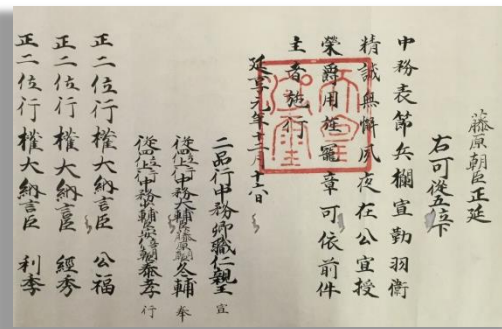 藤原朝臣正延
右可從五位下
中務表節兵欄宣勤羽衛
精誠無懈夙夜在公宜授
榮爵用旌寵章可依前件
主者施行
延享元年十二月十六日
二品行中務卿職仁親王 宣
從四位上行中務大輔臣藤原朝臣冬輔 奉
上行中務少輔臣安倍朝臣泰孝 行
正二位行權大納言臣 公福
正二位行權大納言臣 經秀
正二位行權大納言臣 利季